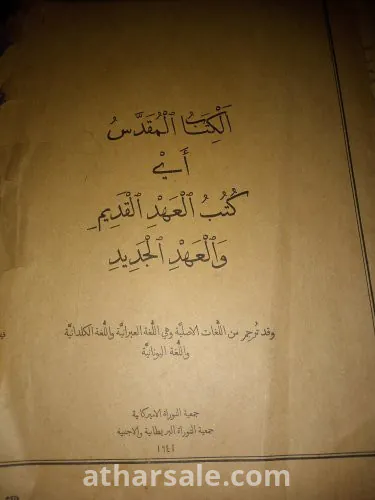 اَلْكِتَابُ الْمُقَدَّسُ
أَيْ
كُتُبُ الْعَهْدِ الْقَدِيمِ
وَالْعَهْدِ الْجَدِيدِ
وقد تُرجم من اللغات الاصليَّة وهي اللُّغة العبرانيَّة واللُّغة الكلدانيَّة
واللُّغة اليونانيَّة
جمعية التوراة الاميركانية
جمعية التوراة البريطانية والاجنبية
atharsale.com